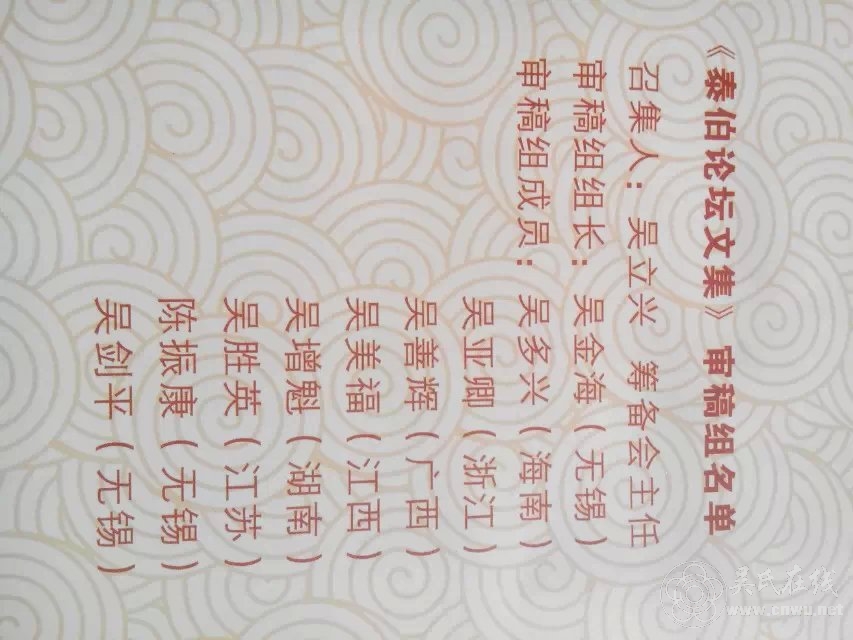 《泰伯论坛文集》审稿组名单
召集人：吴立兴 筹备会主任
审稿组组长：吴金海（无锡）
审稿组成员：吴多兴（海南）
吴亚卿（浙江）
吴善辉（广西）
吴美福（江西）
吴增魁（湖南）
吴胜英（江苏）
陈振康（无锡）
吴剑平（无锡）
吴氏在线
www.cnwu.net